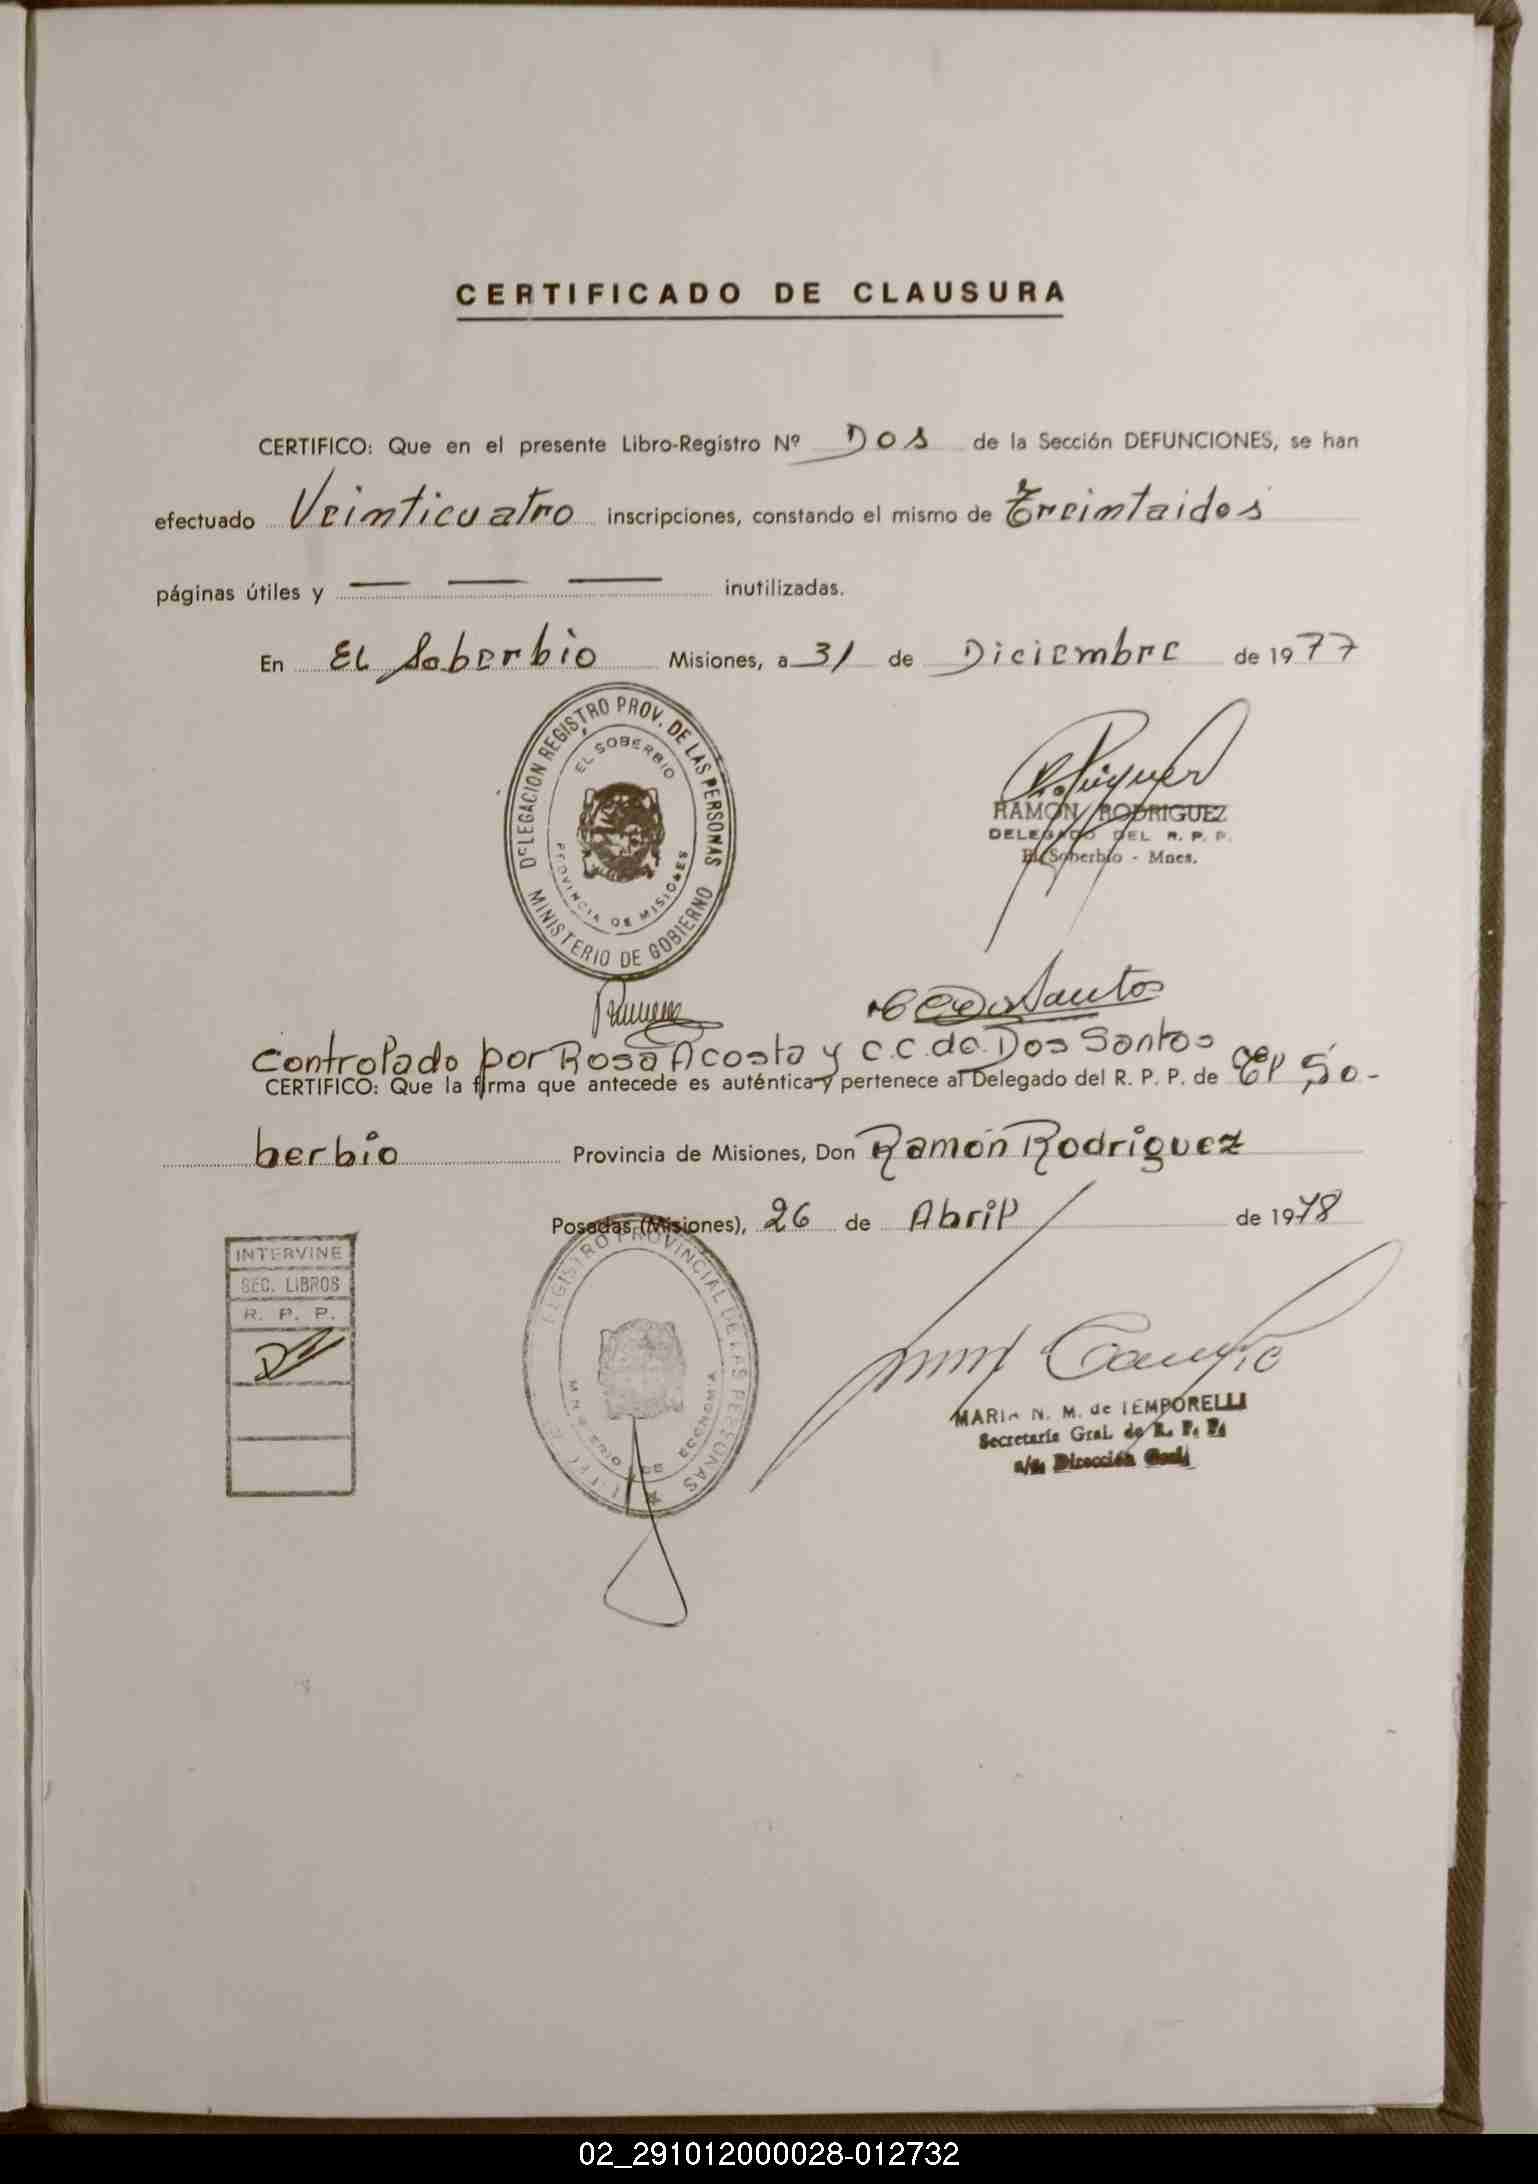 CERTIFICADO DE CLAUSURA
CERTIFICO: Que en el presente Libro-Registro Nº Dos de la Sección DEFUNCIONES, se han
efectuado Veinticuatro inscripciones, constando el mismo de Treintaidos
páginas útiles y — — — inutilizadas.
En El Soberbio Misiones, a 31 de Diciembre de 1977
DELEGACION REGISTRO PROV. DE LAS PERSONAS
EL SOBERBIO
PROVINCIA DE MISIONES
MINISTERIO DE GOBIERNO
RAMON RODRIGUEZ
DELEGADO DEL R. P. P.
El Soberbio - Mnes.
CCdoSantos
Controlado por Rosa Acosta y C.C. de Dos Santos
CERTIFICO: Que la firma que antecede es auténtica y pertenece al Delegado del R. P. P. de El So-
berbio Provincia de Misiones, Don Ramón Rodriguez
Posadas, (Misiones), 26 de Abril de 1978
INTERVINE
SEC. LIBROS
R. P. P.
REGISTRO PROVINCIAL DE LAS PERSONAS
MINISTERIO DE ECONOMIA
MARIA N. M. de TEMPORELLI
Secretaria Gral. de R. P. P.
a/c. Dirección Gral.
02_291012000028-012732